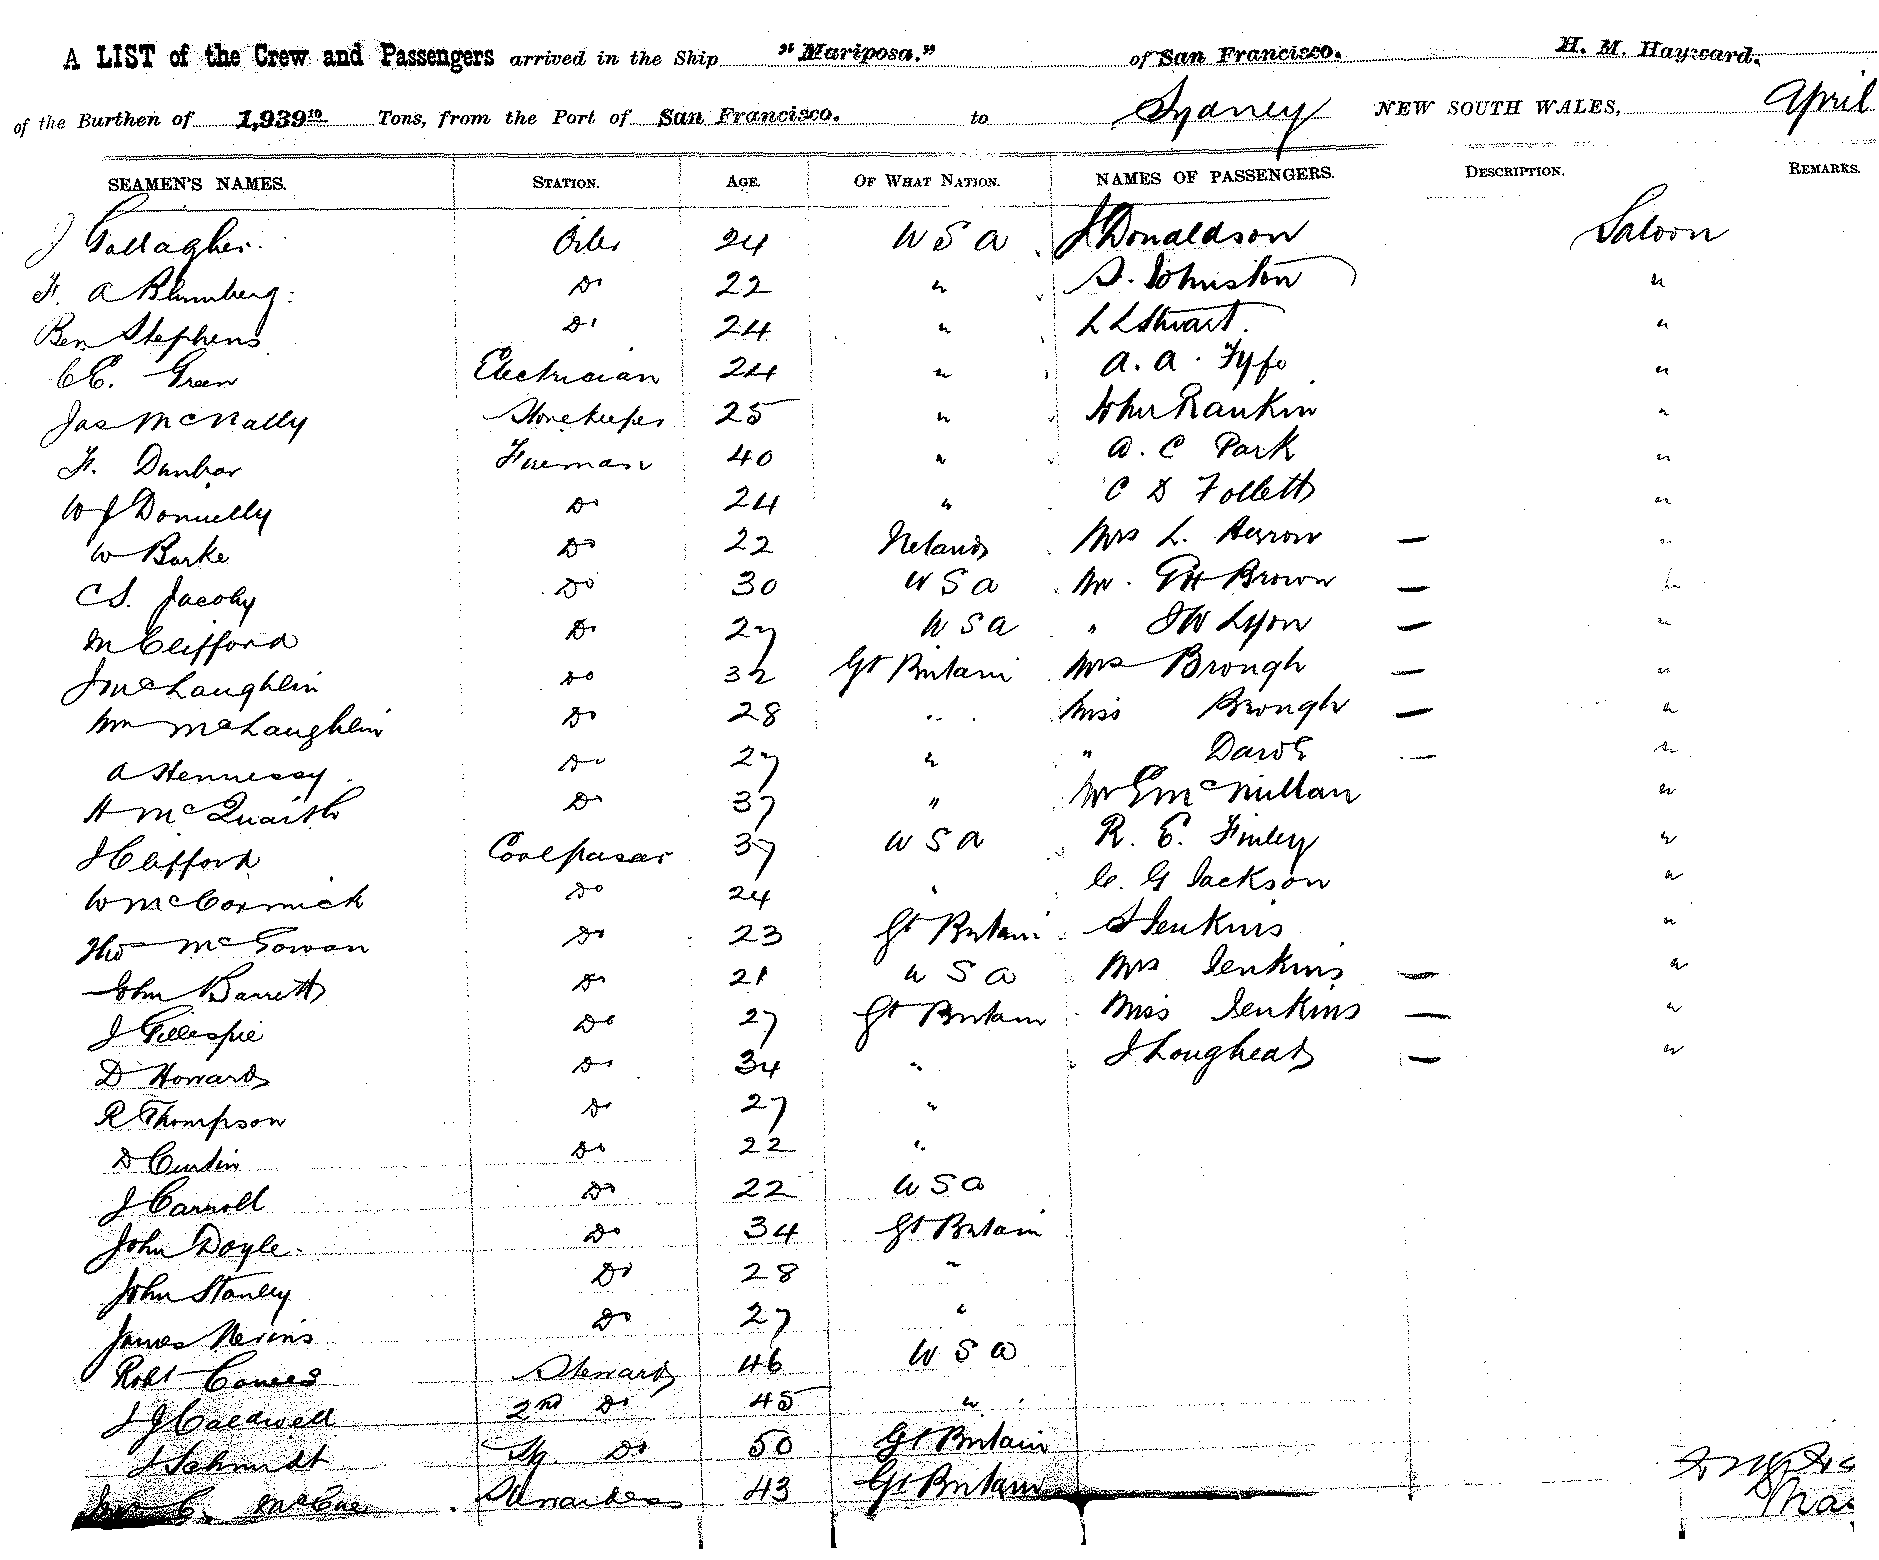 A LIST of the Crew and Passengers arrived in the Ship "Mariposa." of San Francisco. H. M. Hayward.
of the Burthen of 1,939 10 Tons, from the Port of San Francisco. to Sydney NEW SOUTH WALES, April
SEAMEN'S NAMES. STATION. AGE. OF WHAT NATION. NAMES OF PASSENGERS. DESCRIPTION. REMARKS.
J Gallagher. Oiler 24 U S A J Donaldson Saloon
F. A Blumberg: Do 22 " S. Johnston "
Ben Stephens Do 24 " L L Stuart. "
C E. Green Electrician 24 " A. A. Fyfe "
Jas McNally Storekeeper 25 " John Rankin "
F. Dunbar Fireman 40 " A. C Park "
W J Donnelly Do 24 " C D Follett "
W Burke Do 22 Ireland Mrs L. Herron — "
C S. Jacoby Do 30 U S A Mr. G H Brown — "
M Clifford Do 27 U S A " J W Lyon — "
J McLaughlin Do 32 Gt Britain Mrs Brough — "
Wm McLaughlin Do 28 " Miss Brough — "
A Hennessy Do 27 " " — "
H McQuaith Do 37 " Mr McMillan "
J Clifford Coalpasser 37 U S A R. E. Finley "
W McCormick Do 24 " C. G Jackson "
Thos McGowan Do 23 Gt Britain S Jenkins "
John Barrett Do 21 U S A Mrs Jenkins — "
J Gillespie Do 27 Gt Britain Miss Jenkins — "
D Howard Do 34 " J Lougheed — "
R Thompson Do 27 "
D Curtin Do 22 "
J Carroll Do 22 U S A
John Doyle. Do 34 Gt Britain
John Stanley Do 28 "
James Nevins Do 27 "
Robt Steward 46 U S A
J J Caldwell 2nd Do 45 "
J Schmidt Do 50 Gt Britain
C. McCue Stewardess 43 Gt Britain